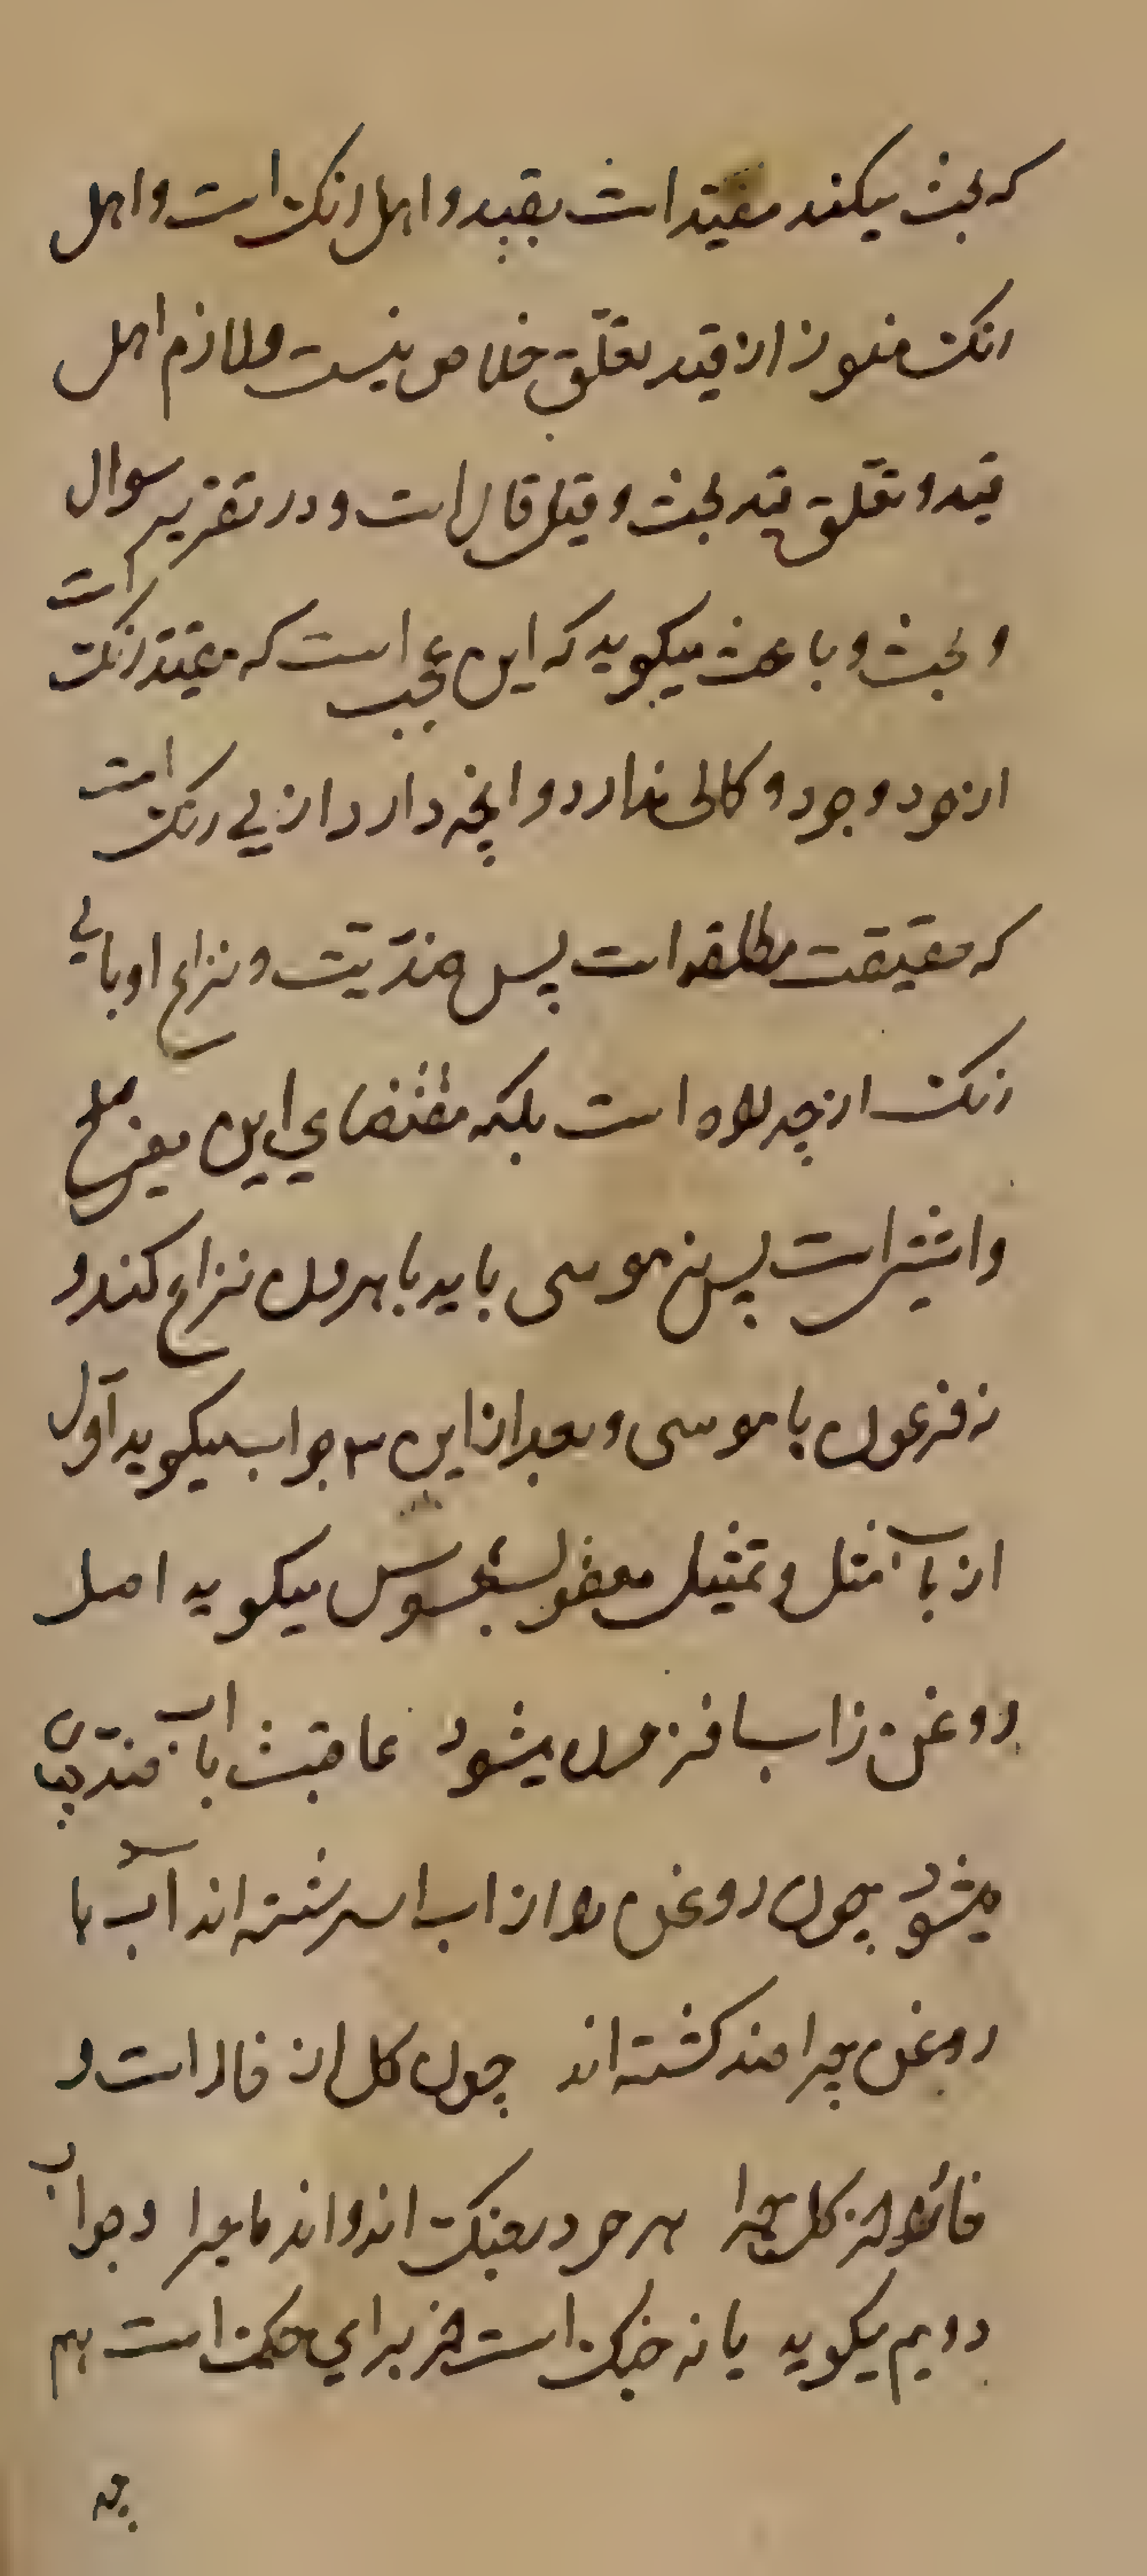 که بحث میکند مقید است بقید و اهل رنک است و اهل
رنک هنوز از قید تعلّق خلاص نیست و ملازم اهل
قید و تعلق قید بحث و قیل قال است و در تقریر سوال
و بحث و باعث میکوید که این عجب است که مقید رنک است
از خود وجود و کمالی ندارد و انچه دارد از بی رنک است
که حقیقت مطلقه است پس ضدّیت و نزاع او با بی
رنک از چه راه است بلکه مقتضای این معنی صلح
و اشتی است پس نه موسی باید با هرون نزاع کند و
نه فرعون با موسی و بعد از این ۳ جواب میکوید آول
از باب مثل و تمثیل معقول بمحسوس میکوید اصل
روغن ز اب افزون میشود عاقبت با اب ضد چون
میشود چون روغن را از اب اسرشته اند آب با
روغن چرا ضد کشته اند چون کل از خار است و
خار از کل چرا هر دو در جنک اند و اندر ماجرا و جواب
دویم میکوید یا نه جنک است این برای حکمت است هم
چه